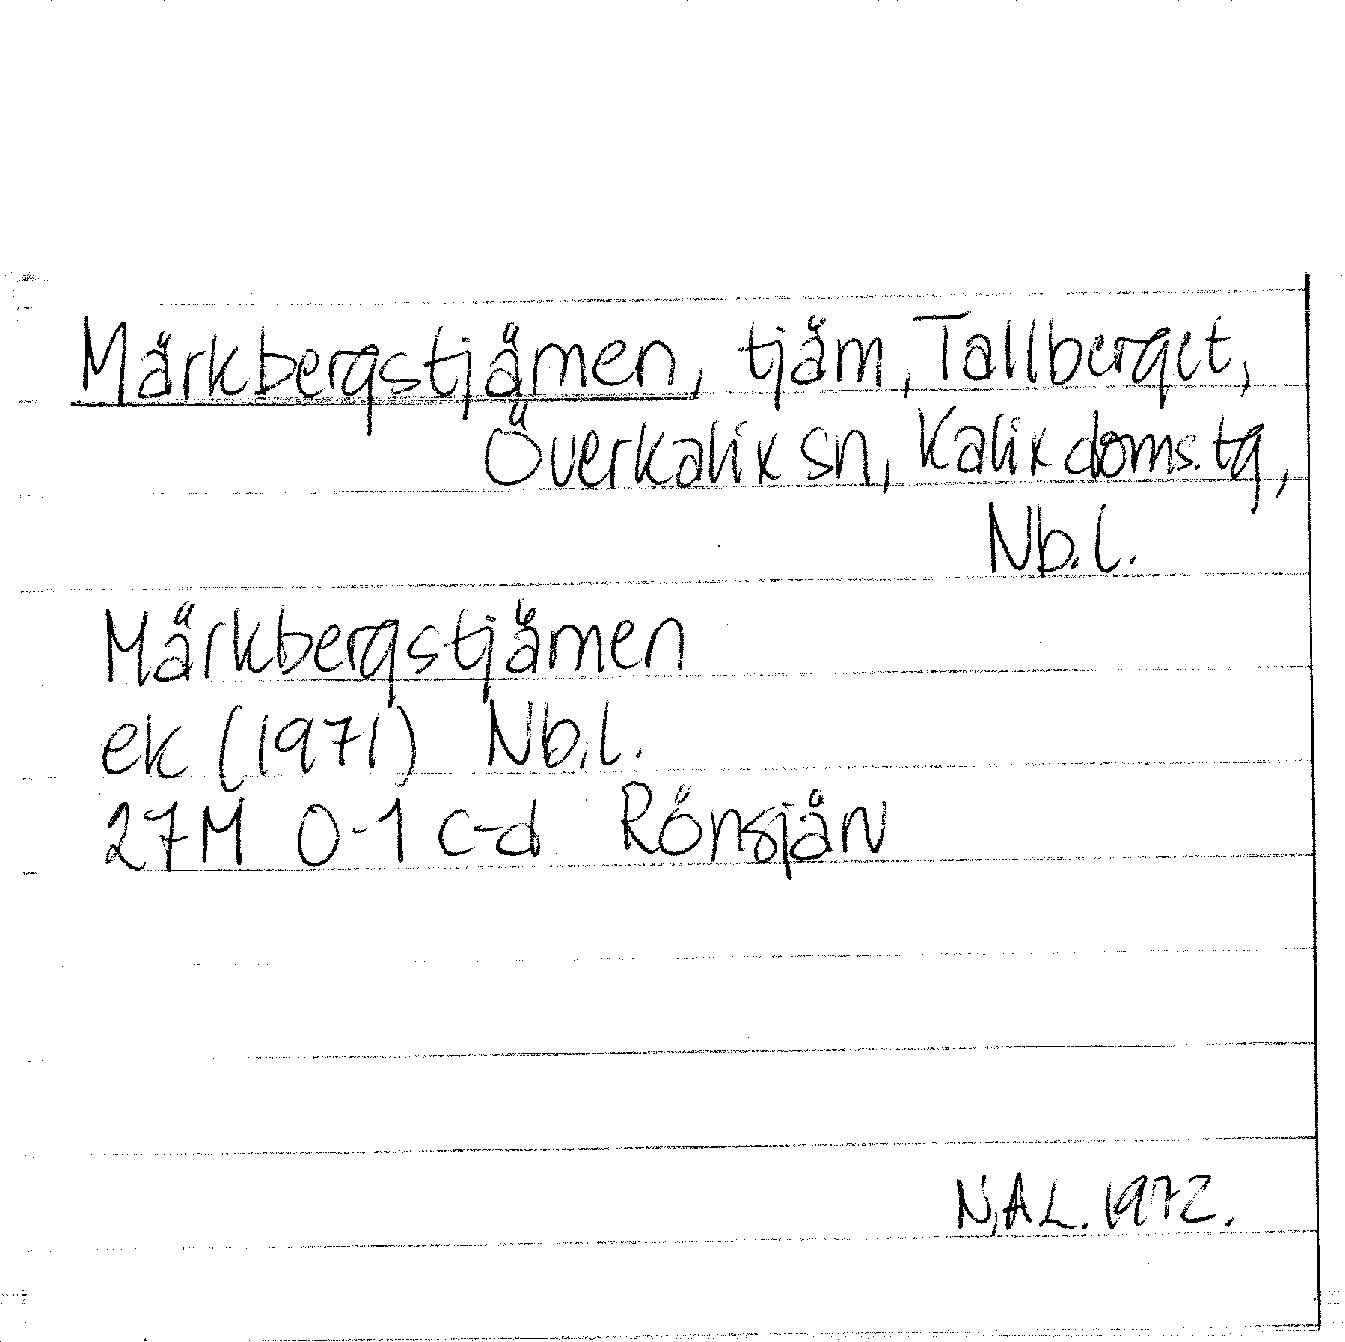 Märkbergstjärnen, tjärn, Tallberget,
Överkalix sn, Kalix doms.tg,
Nb.l.
Märkbergstjärnen
ek (1971) Nb.l.
27M 0-1 c-d Rönsjärv
N.A.L. 1972.